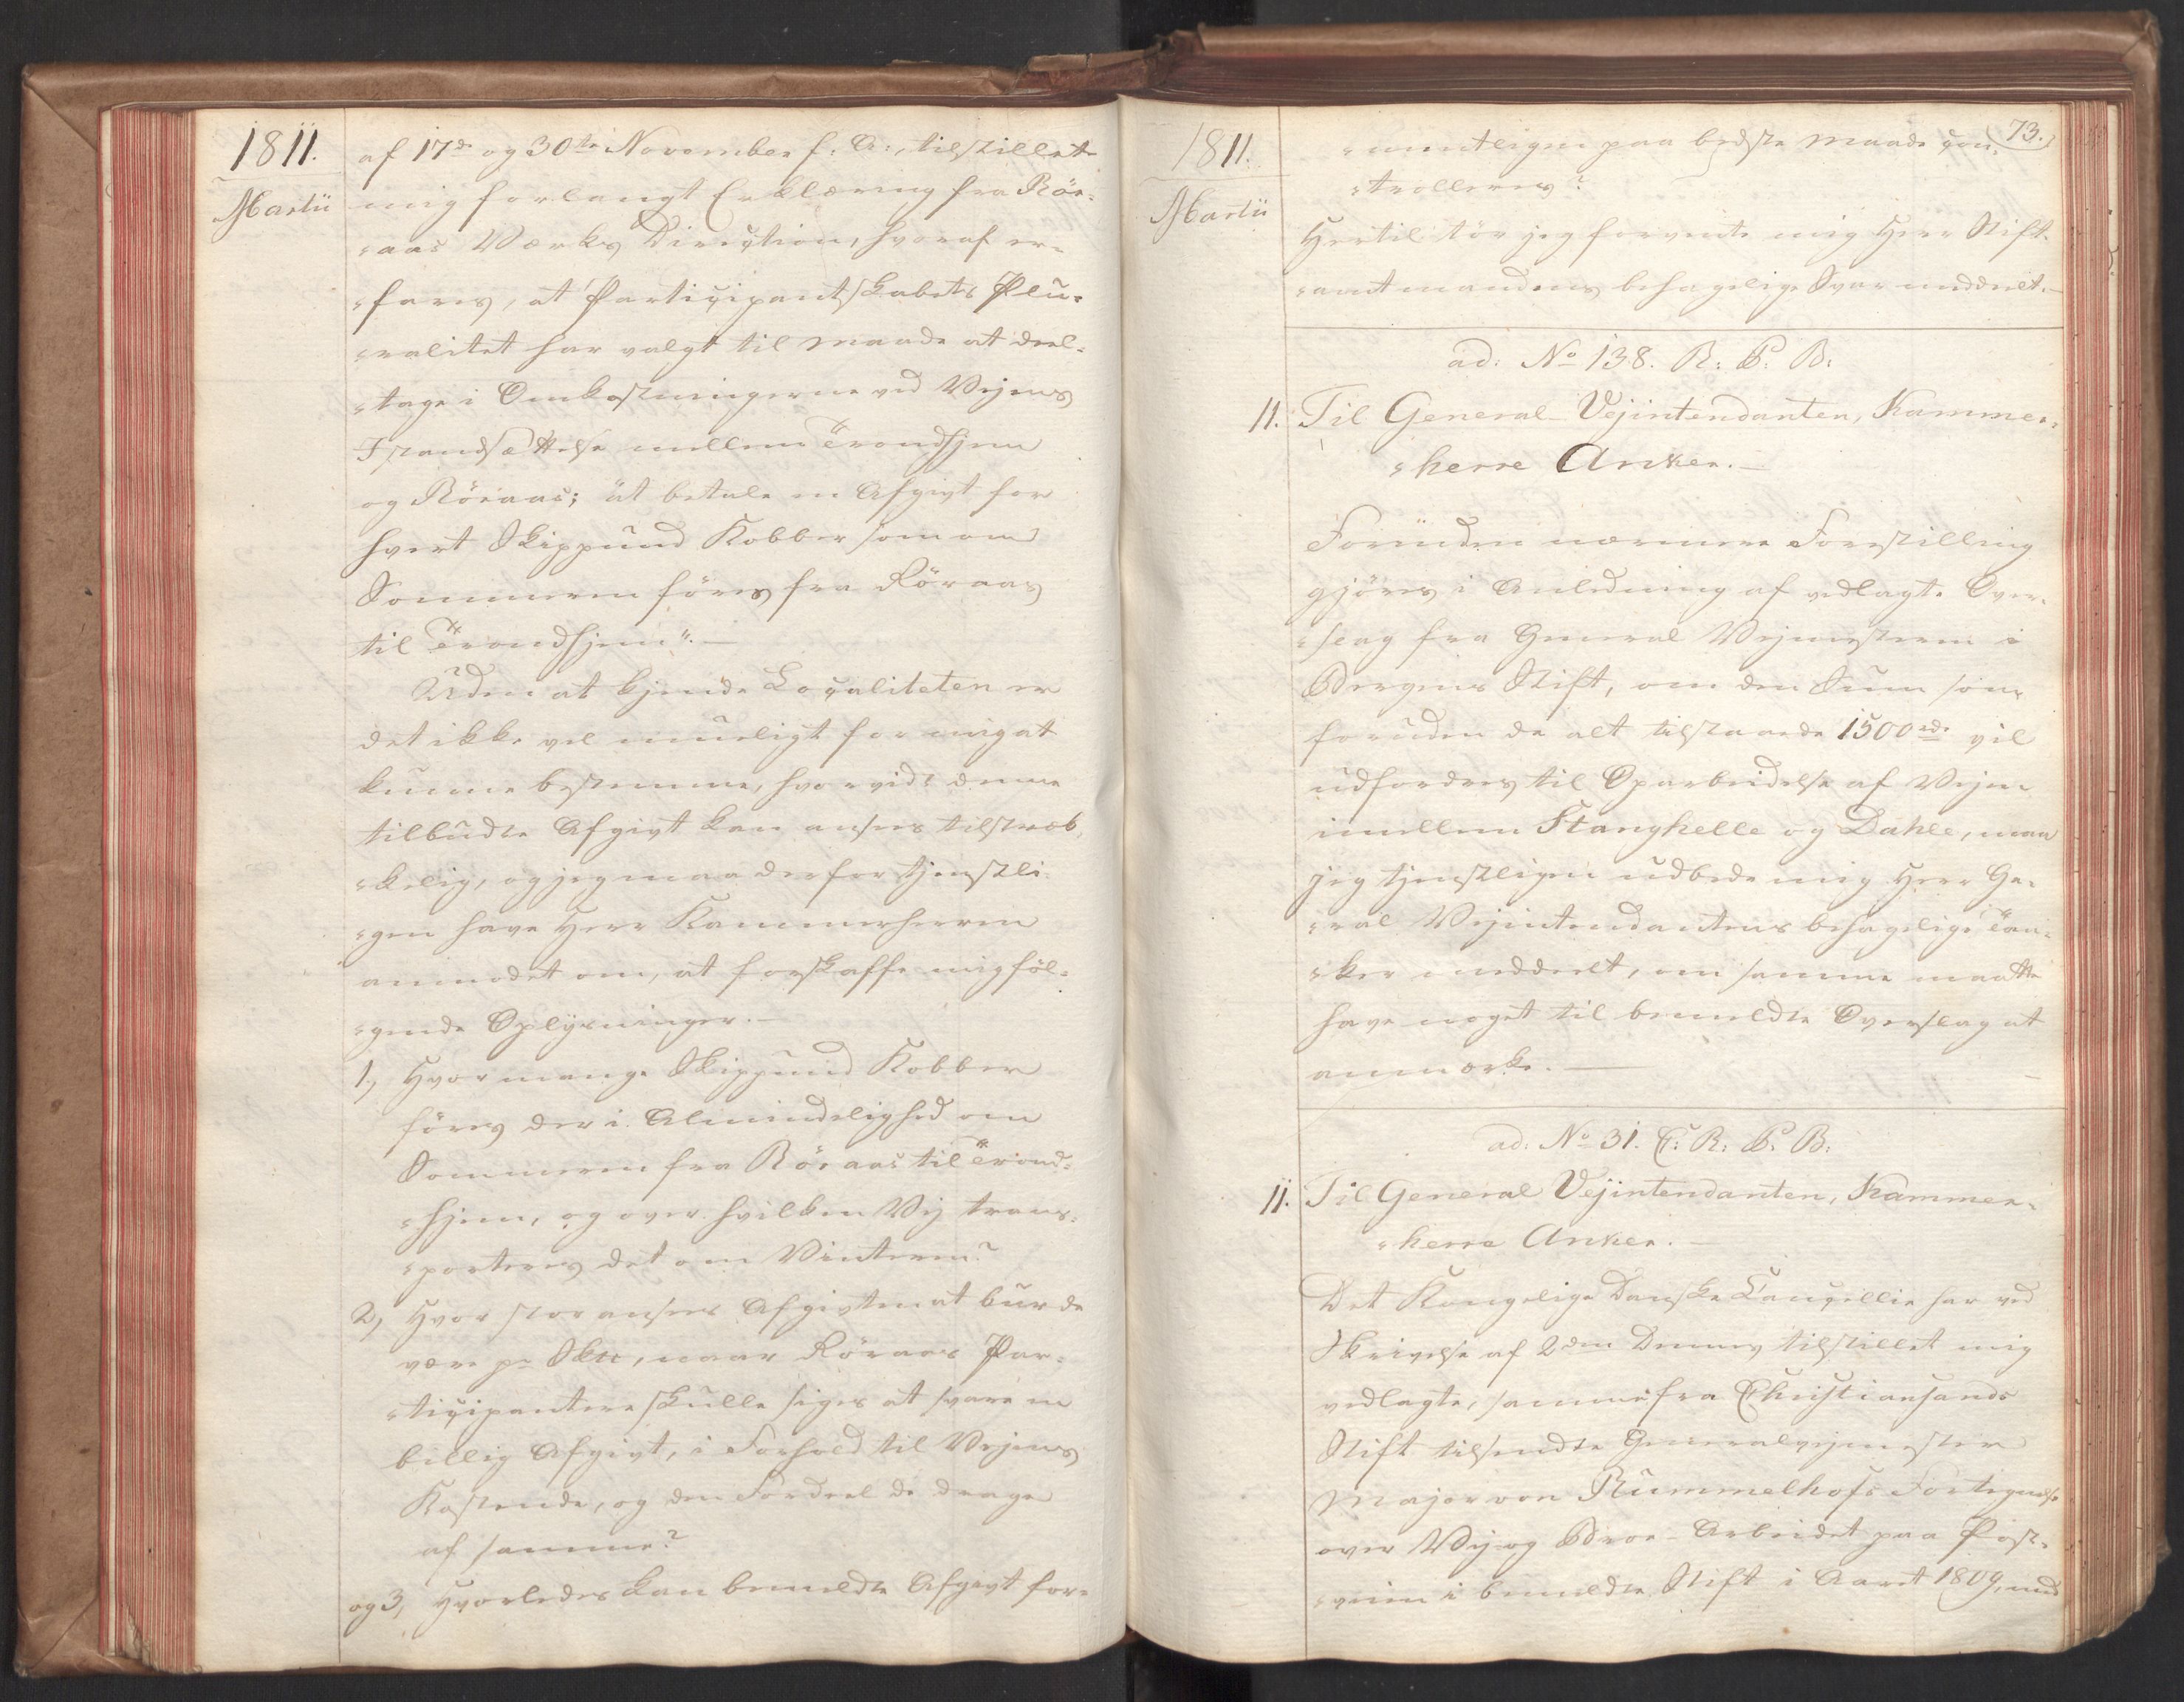 1811.
Martii
af 17de og 30te November f: A:, tilstillet
mig forlangt Erklæring fra Rör-
-aas Værks Direction, hvoraf er-
-fares, at Participantskabets Plu-
-ralitet har valgt til Maade at deel-
-tage i Omkostningerne ved Vejens
Istandsættelse mellem Trondhjem
og Röraas; "at betale en Afgivt for
hvert Skippund Kobber som om
Sommeren föres fra Röraas
til Trondhjem". —
Uden at kjende Localiteten er
det ikke vel mueligt for mig at
kunne bestemme, hvorvidt denne
tilbudte Afgivt kan ansees tilstræk-
-kelig, og jeg maa derfor tjenstli-
-gen have Herr Kammerherren
anmodet om, at forskaffe mig föl-
-gende Oplysninger. —
1, Hvor mange Skippund Kobber
föres der i Almindelighed om
Sommeren fra Röraas til Trond-
-hjem, og over hvilken Vej trans-
-porteres det om Vinteren?
2, Hvor stor ansees Afgivten at burde
være pr Sk℔, naar Röraas Par-
-ticipantere skulle siges at svare en
billig Afgivt, i Forhold til Vejens
Kostende, og den Fordeel de drage
af samme?
og 3, Hvorledes kan bemeldte Afgivt for-
73.
1811.
Martii
-nuntligen paa bedste Maade con-
-trolleres?
Hertil tör jeg forvente mig Herr Stift-
-amtmandens behagelige Svar meddeelt. —
ad: No 138. R: P: B:
11. Til General-Vejintendanten, Kammer-
-herre Anker. —
Forinden nærmere Forestilling
gjöres i Anledning af vedlagte Over-
-slag fra General Vejmesteren i
Bergens Stift, om den Sum som,
foruden de alt tilstaaede 1500 rdr vil
udfordres til Oparbeidelse af Vejen
imellem Stanghelle og Dahle, maa
jeg tjenstligen udbede mig Herr Ge-
-ral Vejintendantens behagelige Tan-
-ker meddeelt, om samme maatte
have noget til bemeldte Overslag at
anmærke. —
ad: No 31. E: R: P: B:
11. Til General Vejintendanten, Kammer-
-herre Anker. —
Det Kongelige Danske Cancellie har ved
Skrivelse af 2den Dennes tilstillet mig
vedlagte, samme fra Christiansands
Stift tilsendte Generalvejmester
Major von Rummelhofs Fortegnelse
over Vej og Broe-Arbeidet paa Post-
-veien i bemeldte Stift i Aaret 1809, med